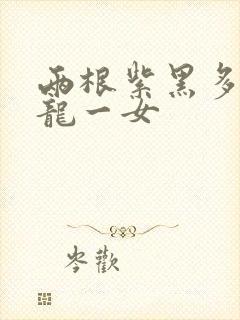 兩根紫黑多
龍一女
岑歡